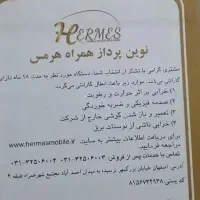 HERMES
نوین پرداز همراه هرمس
مشتری گرامی با تشکر از انتخاب شما، دستگاه مورد نظر به مدت ۱۸ ماه دارای
گارانتی می باشد. موارد زیر باعث ابطال گارانتی می گردد.
۱) خرابی بر اثر حرارت و رطوبت
۲) صدمه فیزیکی و ضربه خوردگی
۳) تعمیر و باز شدن گوشی خارج از شرکت
۴) خرابی ناشی از نوسانات برق
برای دریافت اطلاعات بیشتر به سایت www.hermesmobile.ir
مراجعه فرمایید.
تماس با خدمات پس از فروش: ۳۲۵۰۶۰۰۳-۰۳۱ ۳۲۵۰۶۰۰۴-۰۳۱
آدرس: اصفهان خیابان بزرگمهر نرسیده به میدان احمد آباد مجتمع شهرضراه طبقه ۴
کد پستی: